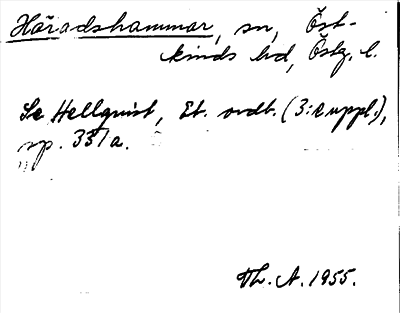 Häradshammar, sn, Öst-
kinds hd, Östg. l.
Se Hellquist, Et. ordb. (3:e uppl.),
sp. 331a.
Th. A. 1955.